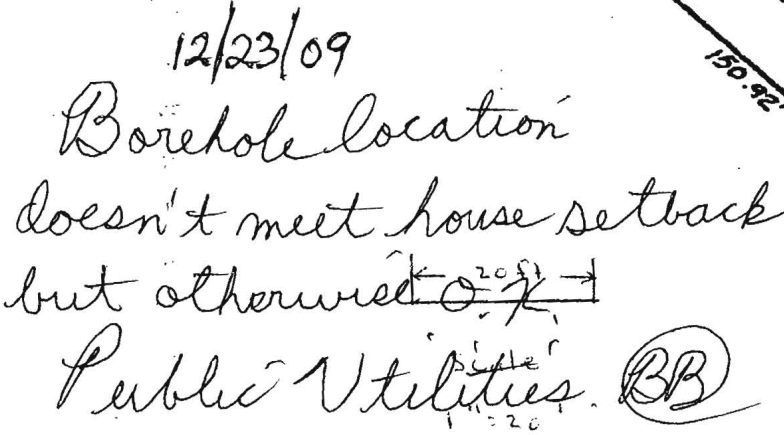 12/23/09
150.92'
Borehole location
doesn't meet house setback
but otherwise O.K.
20 ft
Public Utilities. BB
Scale
1"=20'